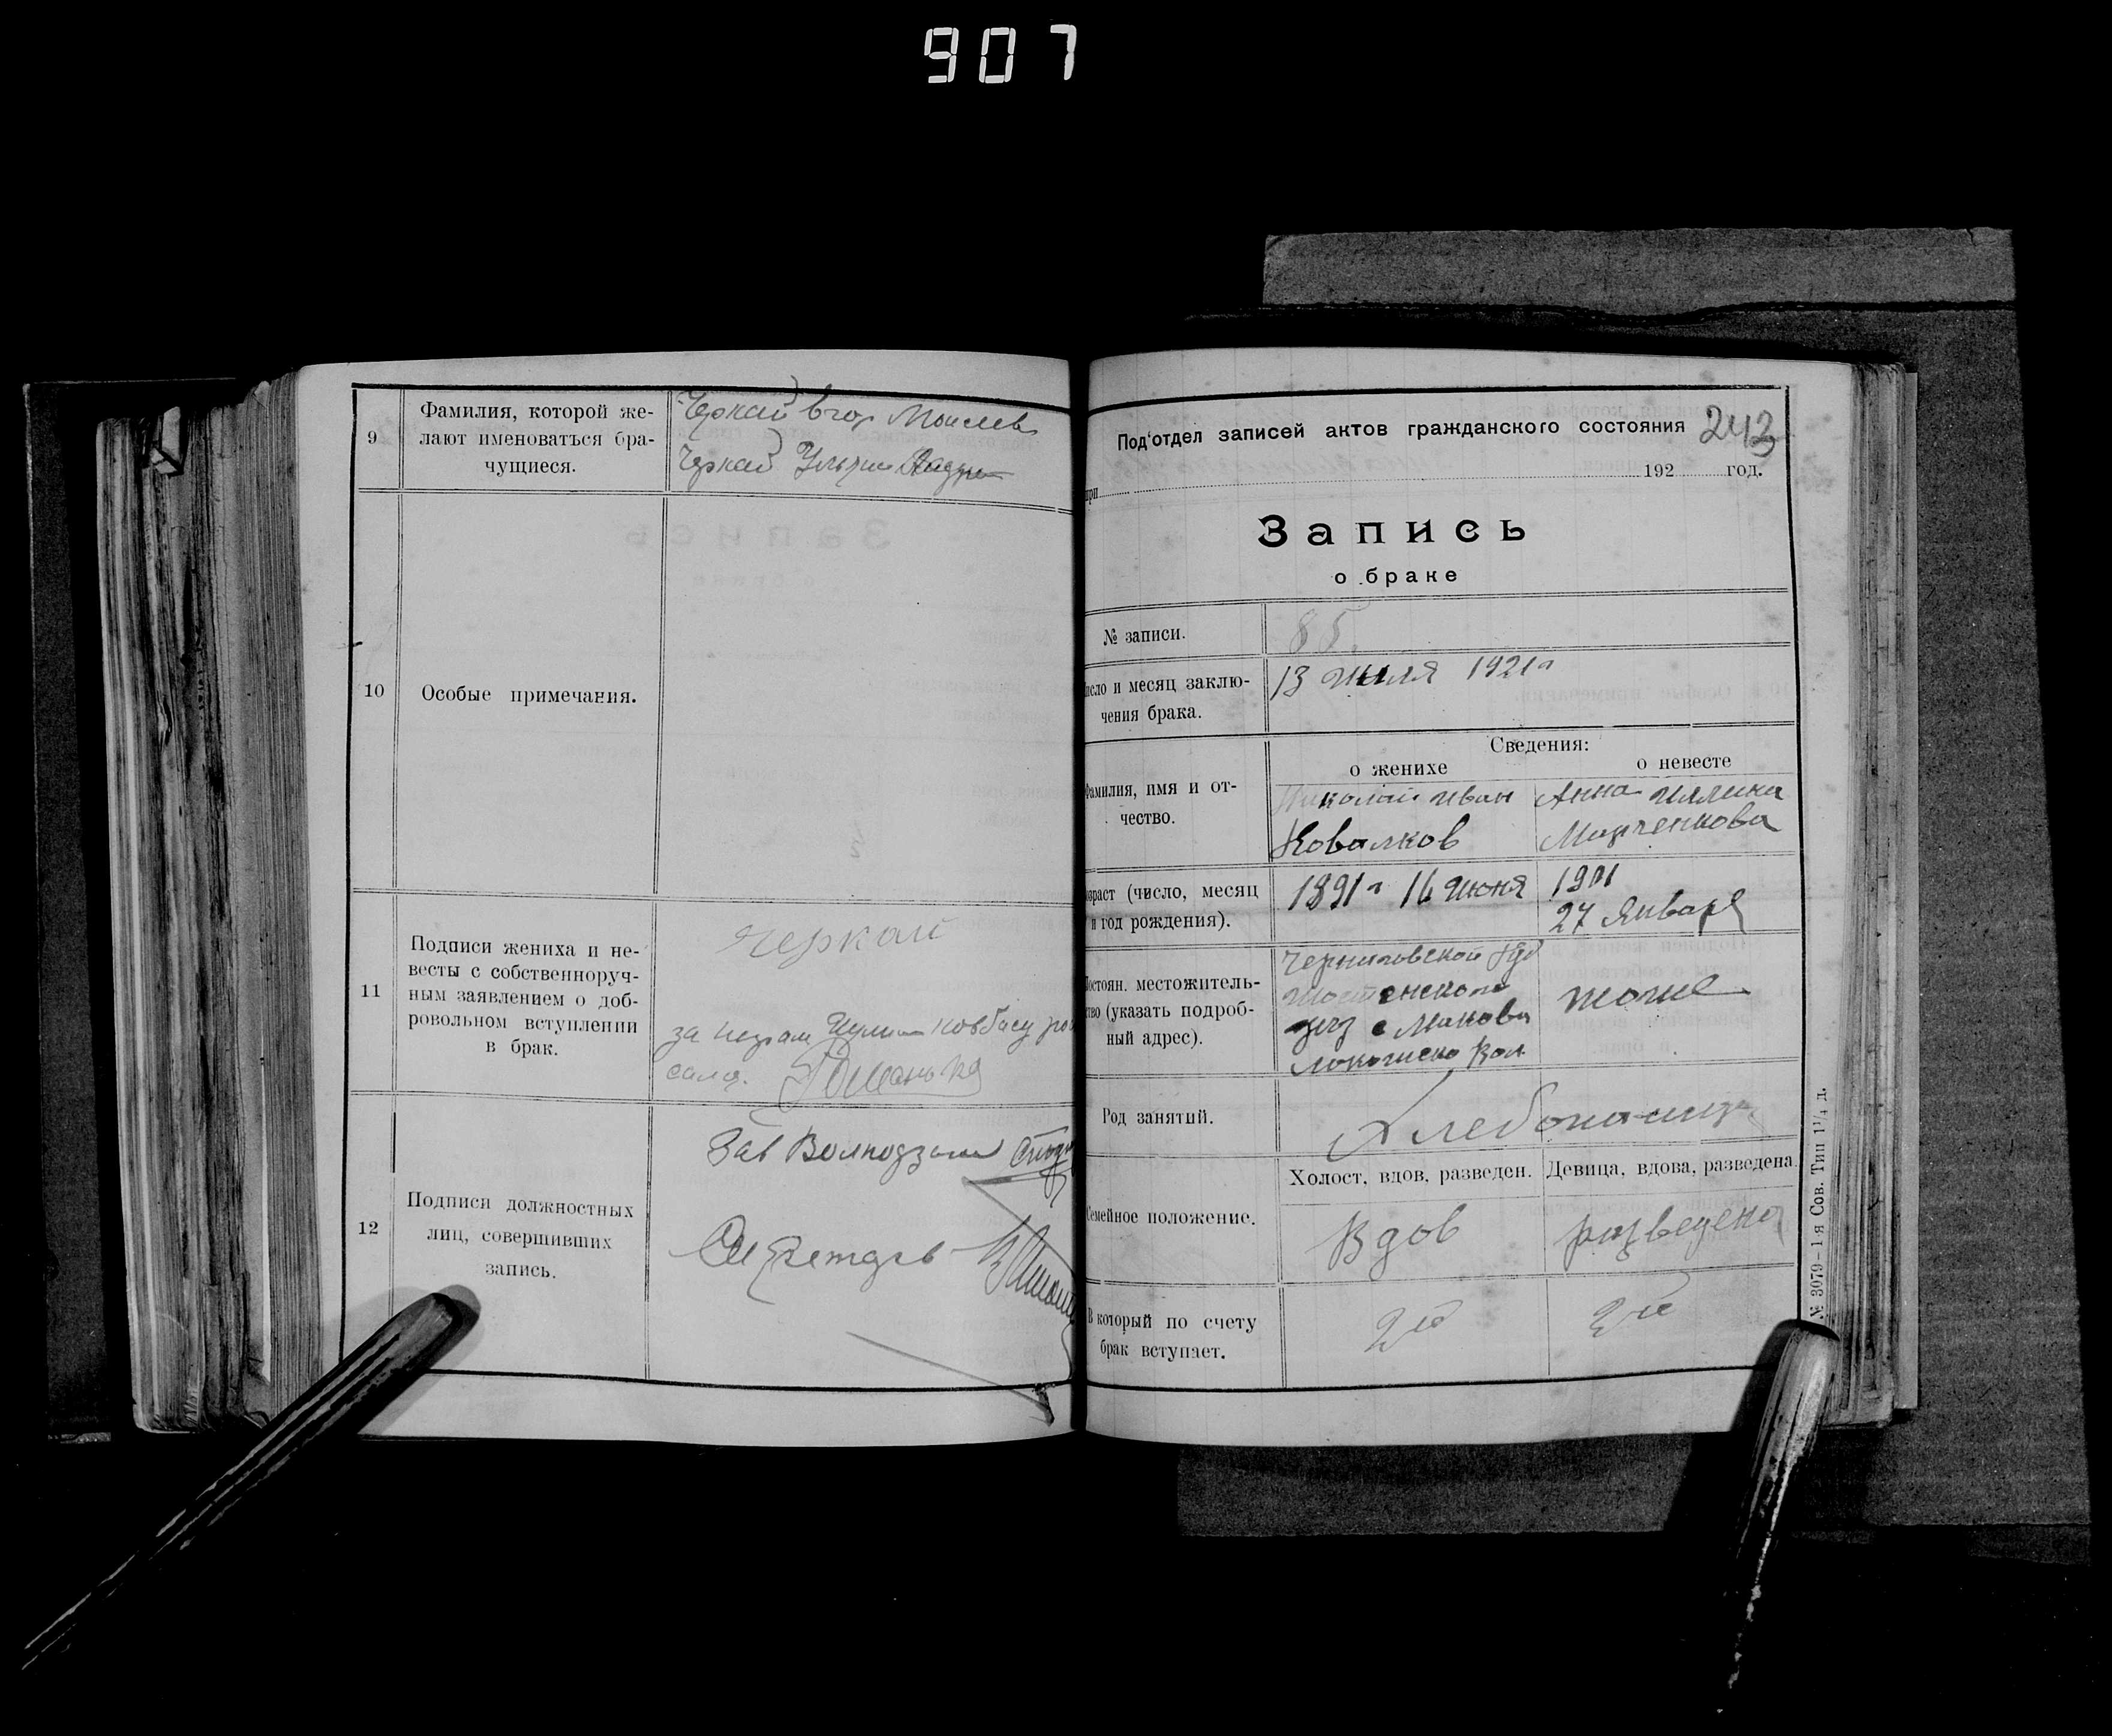 907
9
Фамилия, которой же-
лают именоваться бра-
чущиеся.
Черкай Егор Моисеев
Черкай
10
Особые примечания.
11
Подписи жениха и не-
весты с собственноруч-
ным заявлением о доб-
ровольном вступлении
в брак.
Черкай
за
12
Подписи должностных
лиц, совершивших
запись.
Зав
Секретарь
Под'отдел записей актов гражданского состояния
243
при
192 год.
Запись
о браке
№ записи.
85.
исло и месяц заклю-
чения брака.
13 июля 1921 г
Сведения:
о женихе
о невесте
амилия, имя и от-
чество.
Николай Иван
Ковалков
Анна
Марченкова
зраст (число, месяц
и год рождения).
1891 г 16 июня
1901
27 Января
остоян. местожитель-
тво (указать подроб-
ный адрес).
Черниговской Губ
Шостенского
уез с Макова
вол.
тоже
Род занятий.
Хлебопашец
Семейное положение.
Холост, вдов, разведен.
Девица, вдова, разведена.
Вдов
разведена
В который по счету
брак вступает.
2й
2й
№ 3079-1-я Сов. Тип 1¹/₄ д.